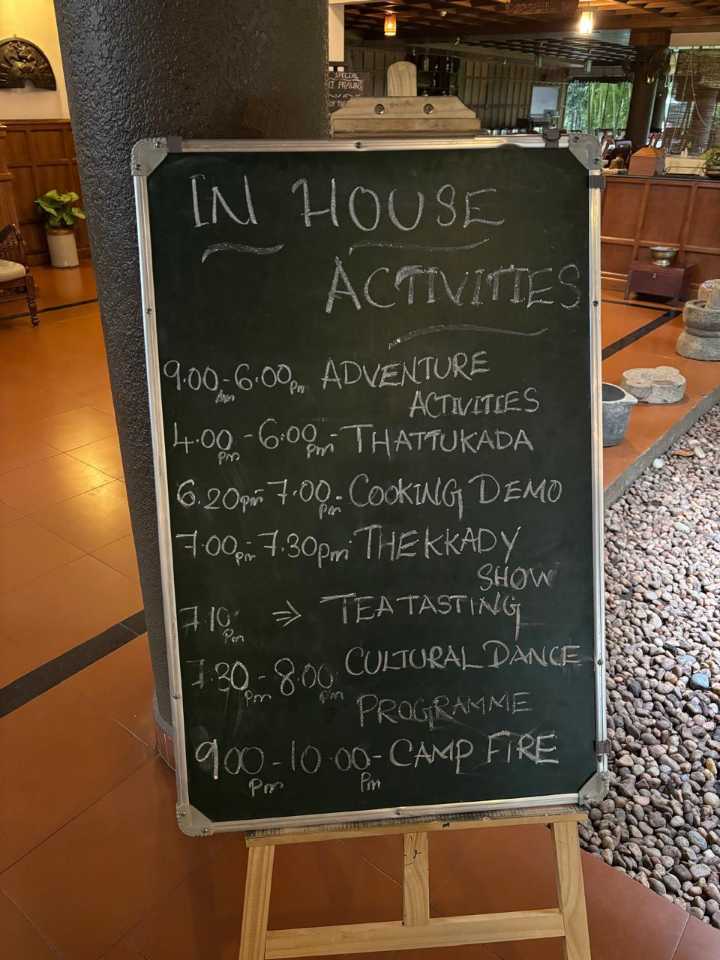 SPECIAL
IN HOUSE
ACTIVITIES
9.00am-6.00pm ADVENTURE
ACTIVITIES
4.00pm-6.00pm-THATTUKADA
6.20pm-7.00pm-COOKING DEMO
7.00pm-7.30pm-THEKKADY
SHOW
7.10pm ⇒ TEA TASTING
7.30pm-8.00pm CULTURAL DANCE
PROGRAMME
9.00pm-10.00pm-CAMP FIRE